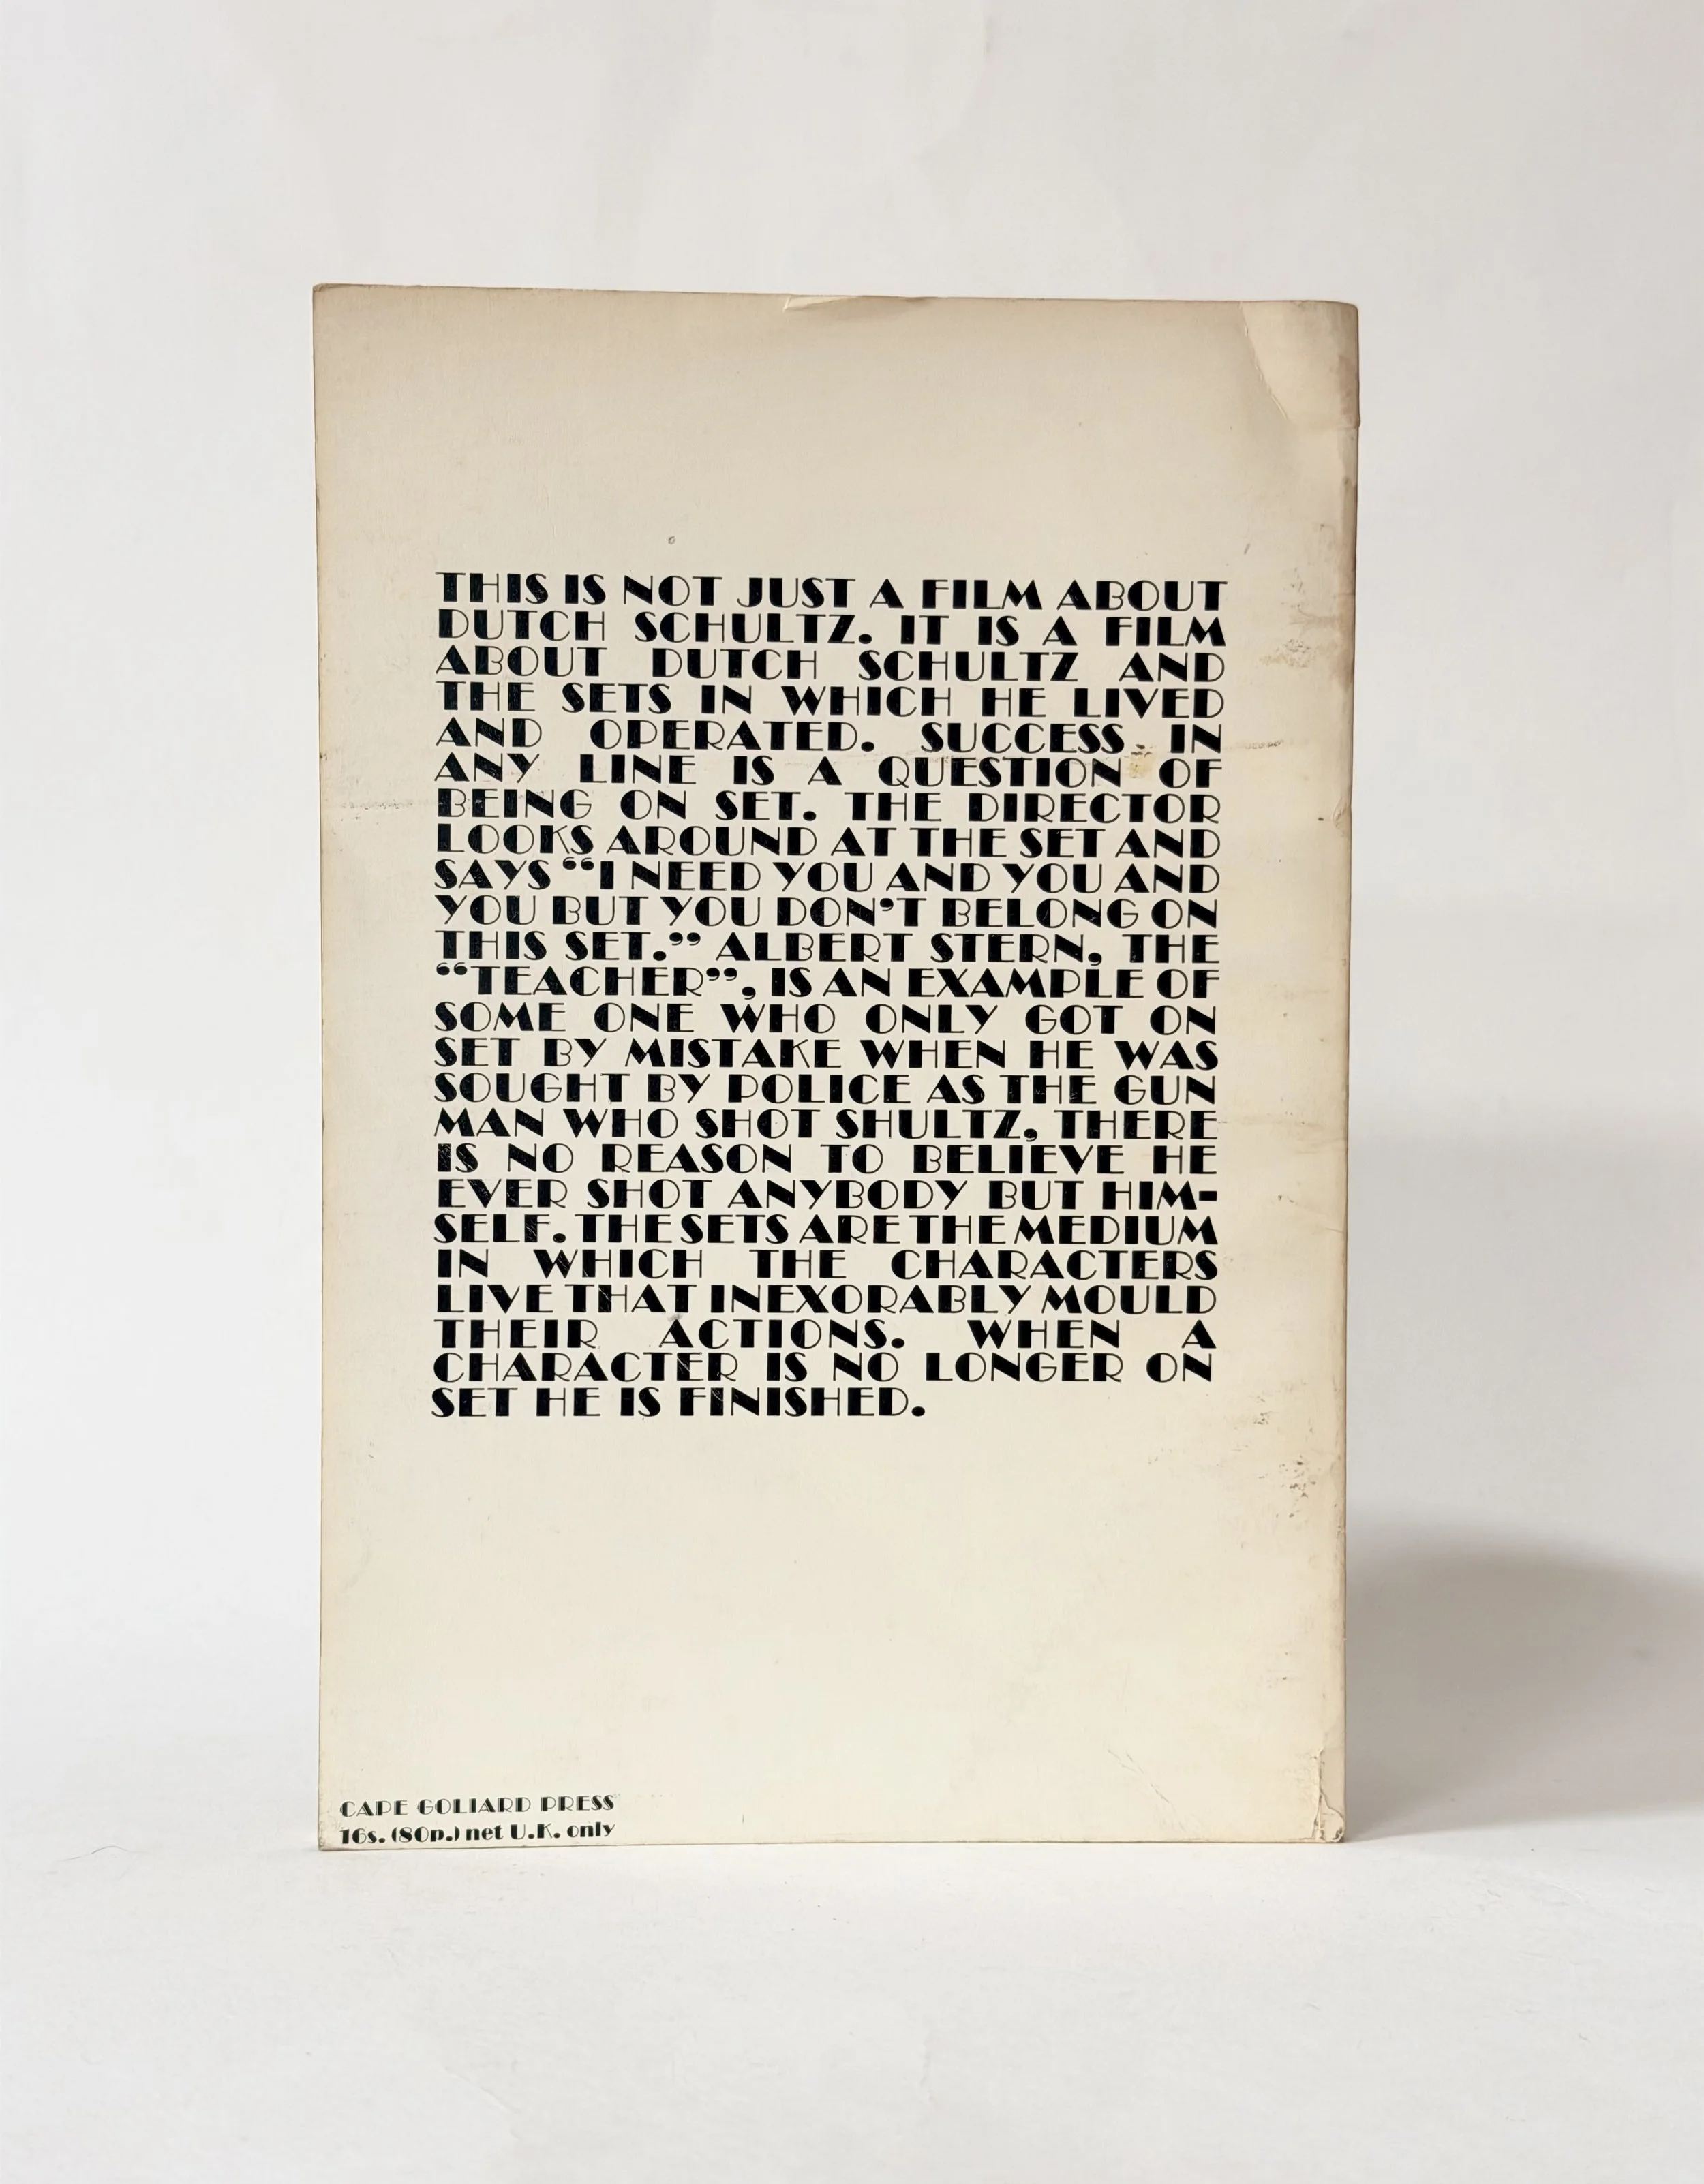 THIS IS NOT JUST A FILM ABOUT
DUTCH SCHULTZ. IT IS A FILM
ABOUT DUTCH SCHULTZ AND
THE SETS IN WHICH HE LIVED
AND OPERATED. SUCCESS IN
ANY LINE IS A QUESTION OF
BEING ON SET. THE DIRECTOR
LOOKS AROUND AT THE SET AND
SAYS “I NEED YOU AND YOU AND
YOU BUT YOU DON’T BELONG ON
THIS SET.” ALBERT STERN, THE
“TEACHER”, IS AN EXAMPLE OF
SOME ONE WHO ONLY GOT ON
SET BY MISTAKE WHEN HE WAS
SOUGHT BY POLICE AS THE GUN
MAN WHO SHOT SHULTZ, THERE
IS NO REASON TO BELIEVE HE
EVER SHOT ANYBODY BUT HIM-
SELF. THE SETS ARE THE MEDIUM
IN WHICH THE CHARACTERS
LIVE THAT INEXORABLY MOULD
THEIR ACTIONS. WHEN A
CHARACTER IS NO LONGER ON
SET HE IS FINISHED.
CAPE GOLIARD PRESS
16s. (80p.) net U.K. only